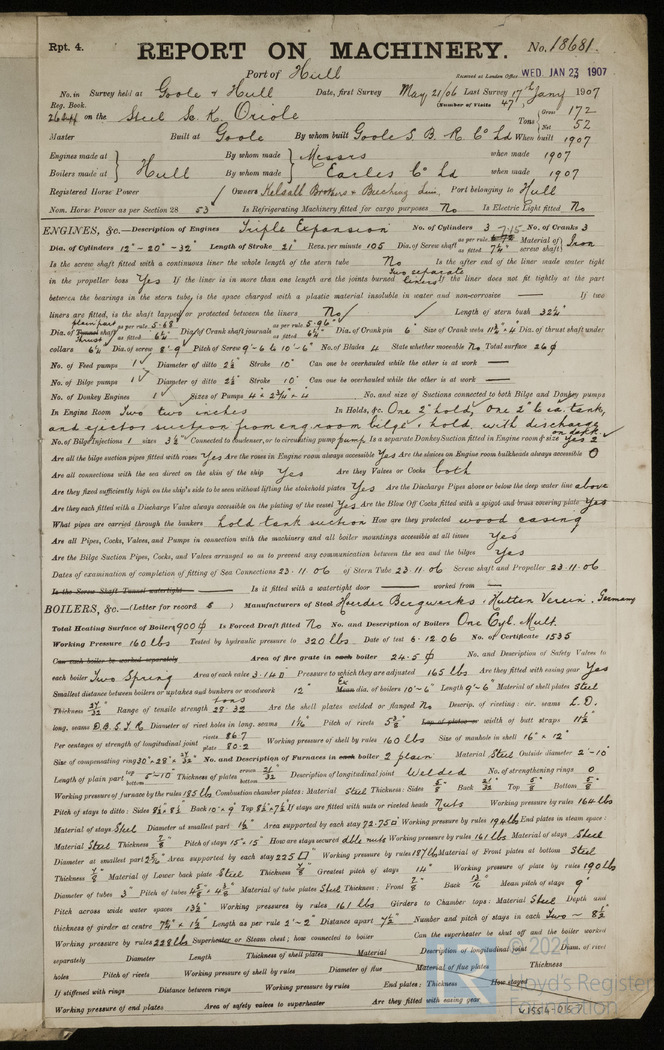 Rpt. 4.
REPORT ON MACHINERY.
No. 18681.
Port of Hull
Received at London Office WED. JAN 23 1907
No. in Survey held at Goole & Hull Date, first Survey May 21/06 Last Survey 17th Jany 1907
Reg. Book. (Number of Visits 47)
26 Supp on the Steel S. K. Oriole Tons Gross 172 Net 52
Master Built at Goole By whom built Goole S. B. R. Co Ld When built 1907
Engines made at Hull By whom made Messrs when made 1907
Boilers made at By whom made Earles Co Ld when made 1907
Registered Horse Power Owners Kelsall Brothers & Beeching Lim. Port belonging to Hull
Nom. Horse Power as per Section 28 53 Is Refrigerating Machinery fitted for cargo purposes No Is Electric Light fitted No
ENGINES, &c.—Description of Engines Triple Expansion No. of Cylinders 3 No. of Cranks 3
Dia. of Cylinders 12" - 20" - 32" Length of Stroke 21" Revs. per minute 105 Dia. of Screw shaft as per rule 7.15 as fitted 7¼" Material of screw shaft Iron
Is the screw shaft fitted with a continuous liner the whole length of the stern tube No Is the after end of the liner made water tight
in the propeller boss Yes If the liner is in more than one length are the joints burned Two separate liners If the liner does not fit tightly at the part
between the bearings in the stern tube, is the space charged with a plastic material insoluble in water and non-corrosive — If two
liners are fitted, is the shaft lapped or protected between the liners No Length of stern bush 32¼"
Dia. of Tunnel shaft plain part Thrust as per rule 5.68" as fitted 6¼" Dia. of Crank shaft journals as per rule 5.96" as fitted 6¼" Dia. of Crank pin 6" Size of Crank webs 11¾" × 4 Dia. of thrust shaft under
collars 6¼" Dia. of screw 8'-9 Pitch of Screw 9'-6 to 10'-6" No. of Blades 4 State whether moveable No Total surface 26 ϕ
No. of Feed pumps 1 Diameter of ditto 2½" Stroke 10" Can one be overhauled while the other is at work —
No. of Bilge pumps 1 Diameter of ditto 2½" Stroke 10" Can one be overhauled while the other is at work —
No. of Donkey Engines 1 Sizes of Pumps 4 × 2¾" × 4 No. and size of Suctions connected to both Bilge and Donkey pumps
In Engine Room Two two inches In Holds, &c. One 2" hold, One 2" to ea. tank,
and ejector suction from eng room bilge & hold, with discharge on deck.
No. of Bilge Injections 1 sizes 3½" Connected to condenser, or to circulating pump pump Is a separate Donkey Suction fitted in Engine room & size Yes 2"
Are all the bilge suction pipes fitted with roses Yes Are the roses in Engine room always accessible Yes Are the sluices on Engine room bulkheads always accessible 0
Are all connections with the sea direct on the skin of the ship Yes Are they Valves or Cocks both
Are they fixed sufficiently high on the ship's side to be seen without lifting the stokehold plates Yes Are the Discharge Pipes above or below the deep water line above
Are they each fitted with a Discharge Valve always accessible on the plating of the vessel Yes Are the Blow Off Cocks fitted with a spigot and brass covering plate Yes
What pipes are carried through the bunkers hold tank suction How are they protected wood casing
Are all Pipes, Cocks, Valves, and Pumps in connection with the machinery and all boiler mountings accessible at all times Yes
Are the Bilge Suction Pipes, Cocks, and Valves arranged so as to prevent any communication between the sea and the bilges Yes
Dates of examination of completion of fitting of Sea Connections 23.11.06 of Stern Tube 23.11.06 Screw shaft and Propeller 23.11.06
Is the Screw Shaft Tunnel watertight — Is it fitted with a watertight door — worked from —
BOILERS, &c.—(Letter for record S) Manufacturers of Steel Hoerder Bergwerks & Hutten Verein, Germany
Total Heating Surface of Boilers 900 ϕ Is Forced Draft fitted No No. and Description of Boilers One Cyl. Mult.
Working Pressure 160 lbs Tested by hydraulic pressure to 320 lbs Date of test 6.12.06 No. of Certificate 1535
Can each boiler be worked separately Area of fire grate in each boiler 24.5 ϕ No. and Description of Safety Valves to
each boiler Two Spring Area of each valve 3.14 □ Pressure to which they are adjusted 165 lbs Are they fitted with easing gear Yes
Smallest distance between boilers or uptakes and bunkers or woodwork 12" Ex Mean dia. of boilers 10'-6" Length 9'-6" Material of shell plates Steel
Thickness 27/32 Range of tensile strength 28-32 tons Are the shell plates welded or flanged No Descrip. of riveting: cir. seams L.D.
long. seams D.B.S.T.R. Diameter of rivet holes in long. seams 1 1/16" Pitch of rivets 5⅜" Lap of plates or width of butt straps 11½"
Per centages of strength of longitudinal joint rivets 86.7 plate 80.2 Working pressure of shell by rules 160 lbs Size of manhole in shell 16" × 12"
Size of compensating ring 30" × 28" × 27/32" No. and Description of Furnaces in each boiler 2 plain Material Steel Outside diameter 2'-10"
Length of plain part top 5'-10" bottom Thickness of plates crown bottom 21/32 Description of longitudinal joint Welded No. of strengthening rings 0
Working pressure of furnace by the rules 185 lbs Combustion chamber plates: Material Steel Thickness: Sides 5/8" Back 21/32" Top 5/8" Bottom 5/8"
Pitch of stays to ditto: Sides 8½ × 8½ Back 10" × 9" Top 8½" × 7½" If stays are fitted with nuts or riveted heads Nuts Working pressure by rules 164 lbs
Material of stays Steel Diameter at smallest part 1½" Area supported by each stay 72.75 □ Working pressure by rules 194 lbs End plates in steam space:
Material Steel Thickness 7/8" Pitch of stays 15" × 15" How are stays secured dble nuts Working pressure by rules 161 lbs Material of stays Steel
Diameter at smallest part 2 9/16" Area supported by each stay 225 □ Working pressure by rules 187 lbs Material of Front plates at bottom Steel
Thickness 7/8" Material of Lower back plate Steel Thickness 7/8" Greatest pitch of stays 14" Working pressure of plate by rules 190 lbs
Diameter of tubes 3" Pitch of tubes 4⅝" × 4⅜" Material of tube plates Steel Thickness: Front 7/8" Back 13/16" Mean pitch of stays 9"
Pitch across wide water spaces 13½" Working pressures by rules 161 lbs Girders to Chamber tops: Material Steel Depth and
thickness of girder at centre 7¾" × 1½" Length as per rule 2'-2" Distance apart 7½" Number and pitch of stays in each Two - 8½"
Working pressure by rules 228 lbs Superheater or Steam chest; how connected to boiler Can the superheater be shut off and the boiler worked
separately Diameter Length Thickness of shell plates Material Description of longitudinal joint Diam. of rivet
holes Pitch of rivets Working pressure of shell by rules Diameter of flue Material of flue plates Thickness
If stiffened with rings Distance between rings Working pressure by rules End plates: Thickness How stayed
Working pressure of end plates Area of safety valves to superheater Are they fitted with easing gear
© 2021
Lloyd's Register
Foundation
W1554-0157